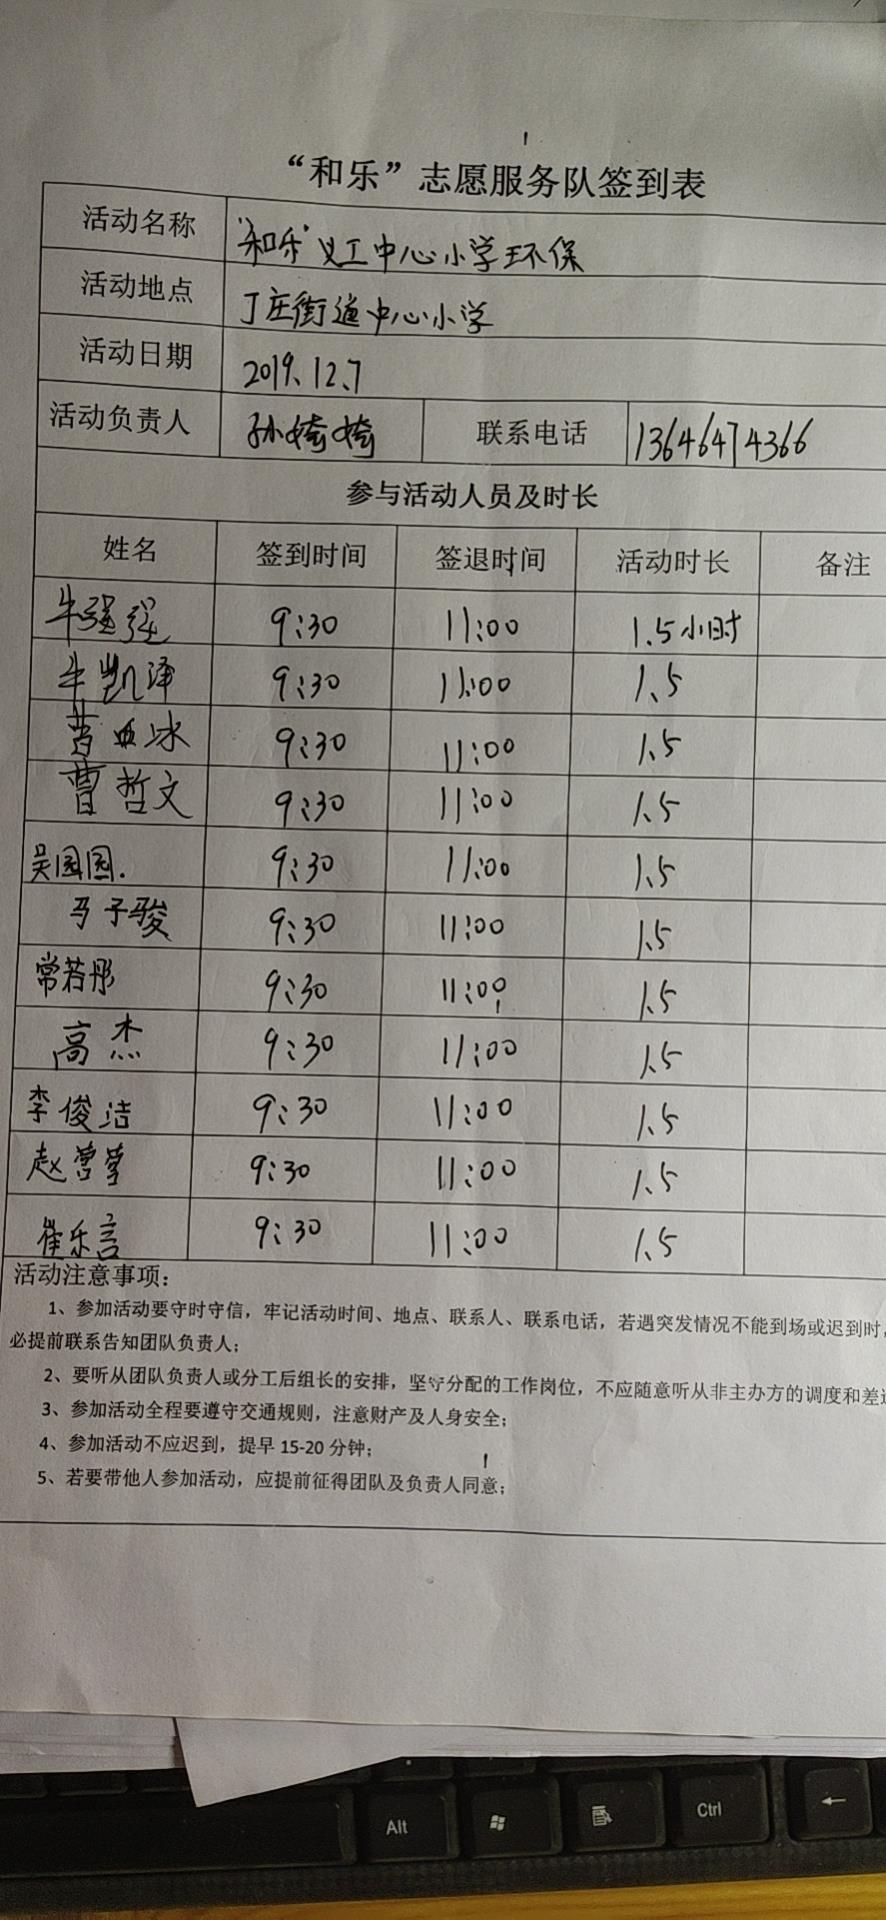 “和乐”志愿服务队签到表
活动名称 “和乐”义工中心小学环保
活动地点 丁庄街道中心小学
活动日期 2019.12.7
活动负责人 孙婷婷 联系电话 13646474366
参与活动人员及时长
姓名 签到时间 签退时间 活动时长 备注
牛强强 9:30 11:00 1.5小时
牛凯泽 9:30 11:00 1.5
9:30 11:00 1.5
曹哲文 9:30 11:00 1.5
吴园园. 9:30 11:00 1.5
马子骏 9:30 11:00 1.5
常若彤 9:30 11:00 1.5
高杰 9:30 11:00 1.5
李俊洁 9:30 11:00 1.5
赵营营 9:30 11:00 1.5
崔乐言 9:30 11:00 1.5
活动注意事项：
1、参加活动要守时守信，牢记活动时间、地点、联系人、联系电话，若遇突发情况不能到场或迟到时，
必提前联系告知团队负责人；
2、要听从团队负责人或分工后组长的安排，坚守分配的工作岗位，不应随意听从非主办方的调度和差
3、参加活动全程要遵守交通规则，注意财产及人身安全；
4、参加活动不应迟到，提早 15-20 分钟；
5、若要带他人参加活动，应提前征得团队及负责人同意；
Alt
Ctrl